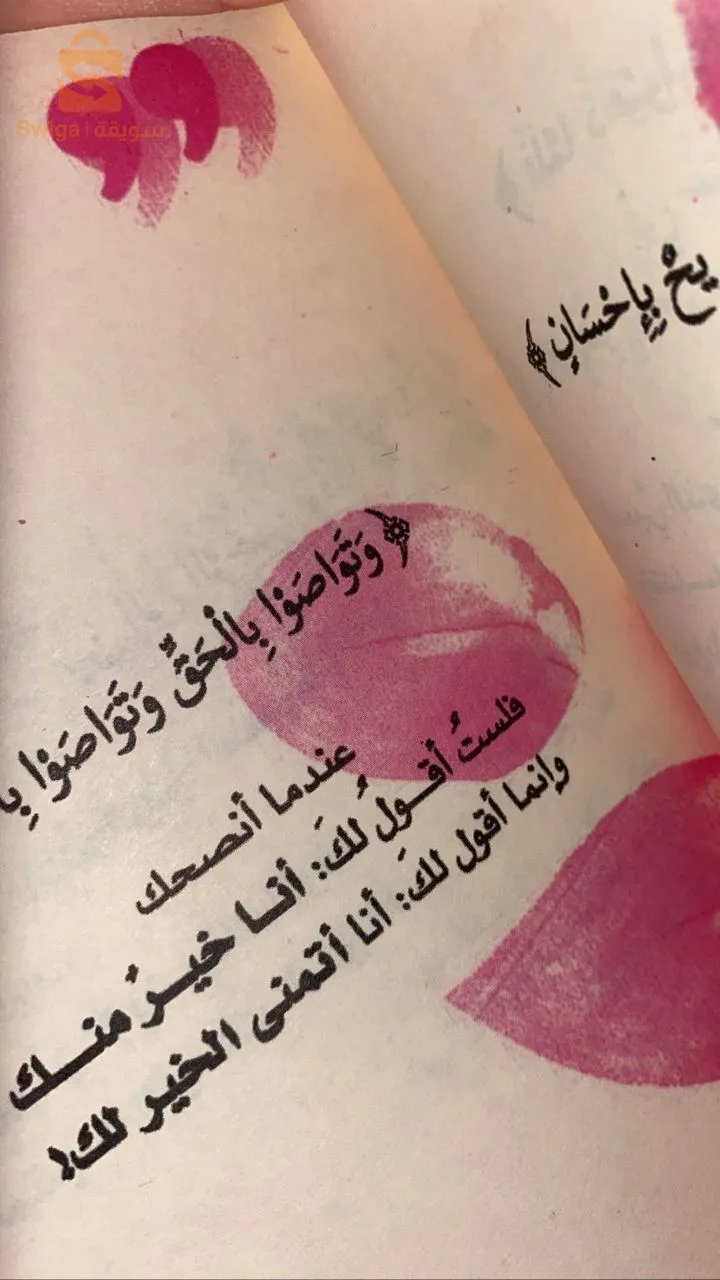 Swiga | سويقة
يحٌ بِإِحْسَانٍ ﴾
﴿ وَتَوَاصَوْا بِالْحَقِّ وَتَوَاصَوْا بِ
عندما أنصحك
فلستُ أقولُ لكَ: أنا خيرُ منك
وإنما أقول لكَ: أنا أتمنى الخير لك!